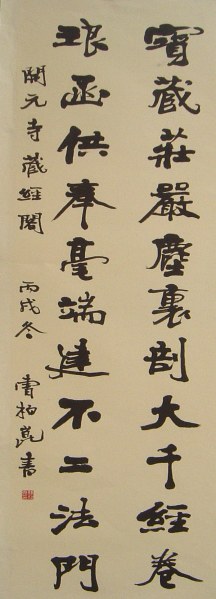 寶藏莊嚴塵裏剖大千經卷
琅函供奉毫端建不二法門
開元寺藏經閣 丙戌冬 曹柏崑書